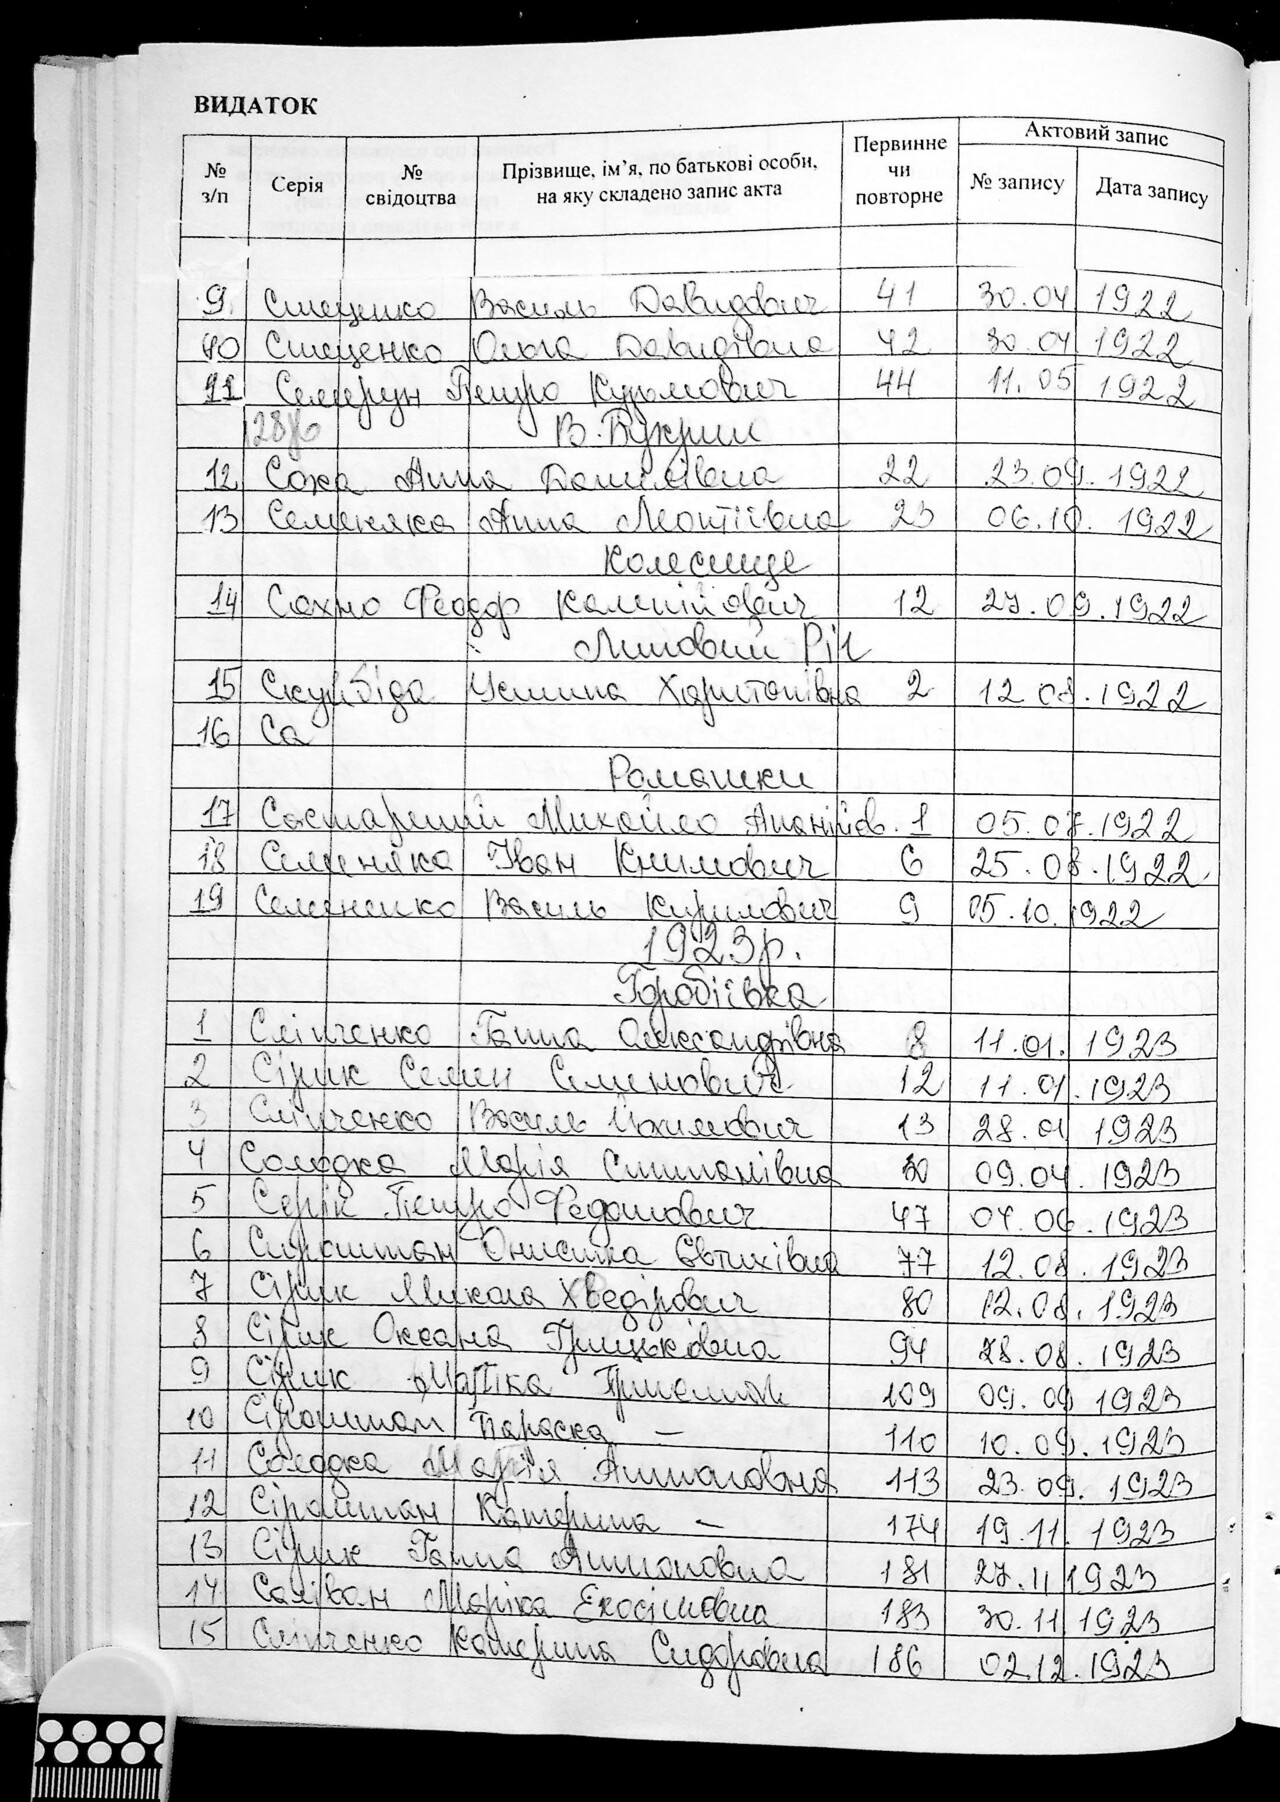 ВИДАТОК
№ з/п Серія № свідоцтва Прізвище, ім’я, по батькові особи, на яку складено запис акта Первинне чи повторне Актовий запис № запису Дата запису
9. Стеценко Василь Давидович 41 30.04 1922
10 Стеценко Ольга Давидівна 42 30.04 1922
11 Семергун Петро Кузьмович 44 11.05 1922
В. Букрин
12 Сожа Анна Данилівна 22 23.09. 1922
13 Семеняка Анна Леонтіївна 23 06.10. 1922
Колесище
14 Сахно Феодор Калений ович 12 27.09.1922
Липовий Ріг
15 Скуйбіда Устина Харитонівна 2 12.08.1922
16 Са
Ромашки
17 Састарений Михайло Ананійов. 1 05.07.1922
18 Семеняка Іван Климович 6 25.08.1922.
19 Семененко Василь Кирилович 9 05.10.1922
1923р.
Горобіївка
1 Сліпченко Ганна Олександрівна 8 11.01. 1923
2 Сірик Семен Семенович 12 11.01.1923
3 Сліпченко Василь Йохимович 13 28.01 1923
4 Солодка Марія Степанівна 30 09.04. 1923
5 Серік Петро Федотович 47 04.06.1923
6 Сироштан Онисика Євтихівна 77 12.08.1923
7 Сірик Микола Хведірович 80 12.08.1923
8 Сірик Оксана Грицьківна 94 28.08.1923
9 Сірик Марїка 109 09.09 1923
10 Сіроштан Параска – 110 10.09.1923
11 Солодка Марія Антоновна 113 23.09. 1923
12 Сіроштан Катерина – 174 19.11. 1923
13 Сірик Ганна Антоновна 181 27.11 1923
14 Саліван Маріка Ехосімовна 183 30.11 1923
15 Сліпченко Катерина Сидоровна 186 02.12.1923